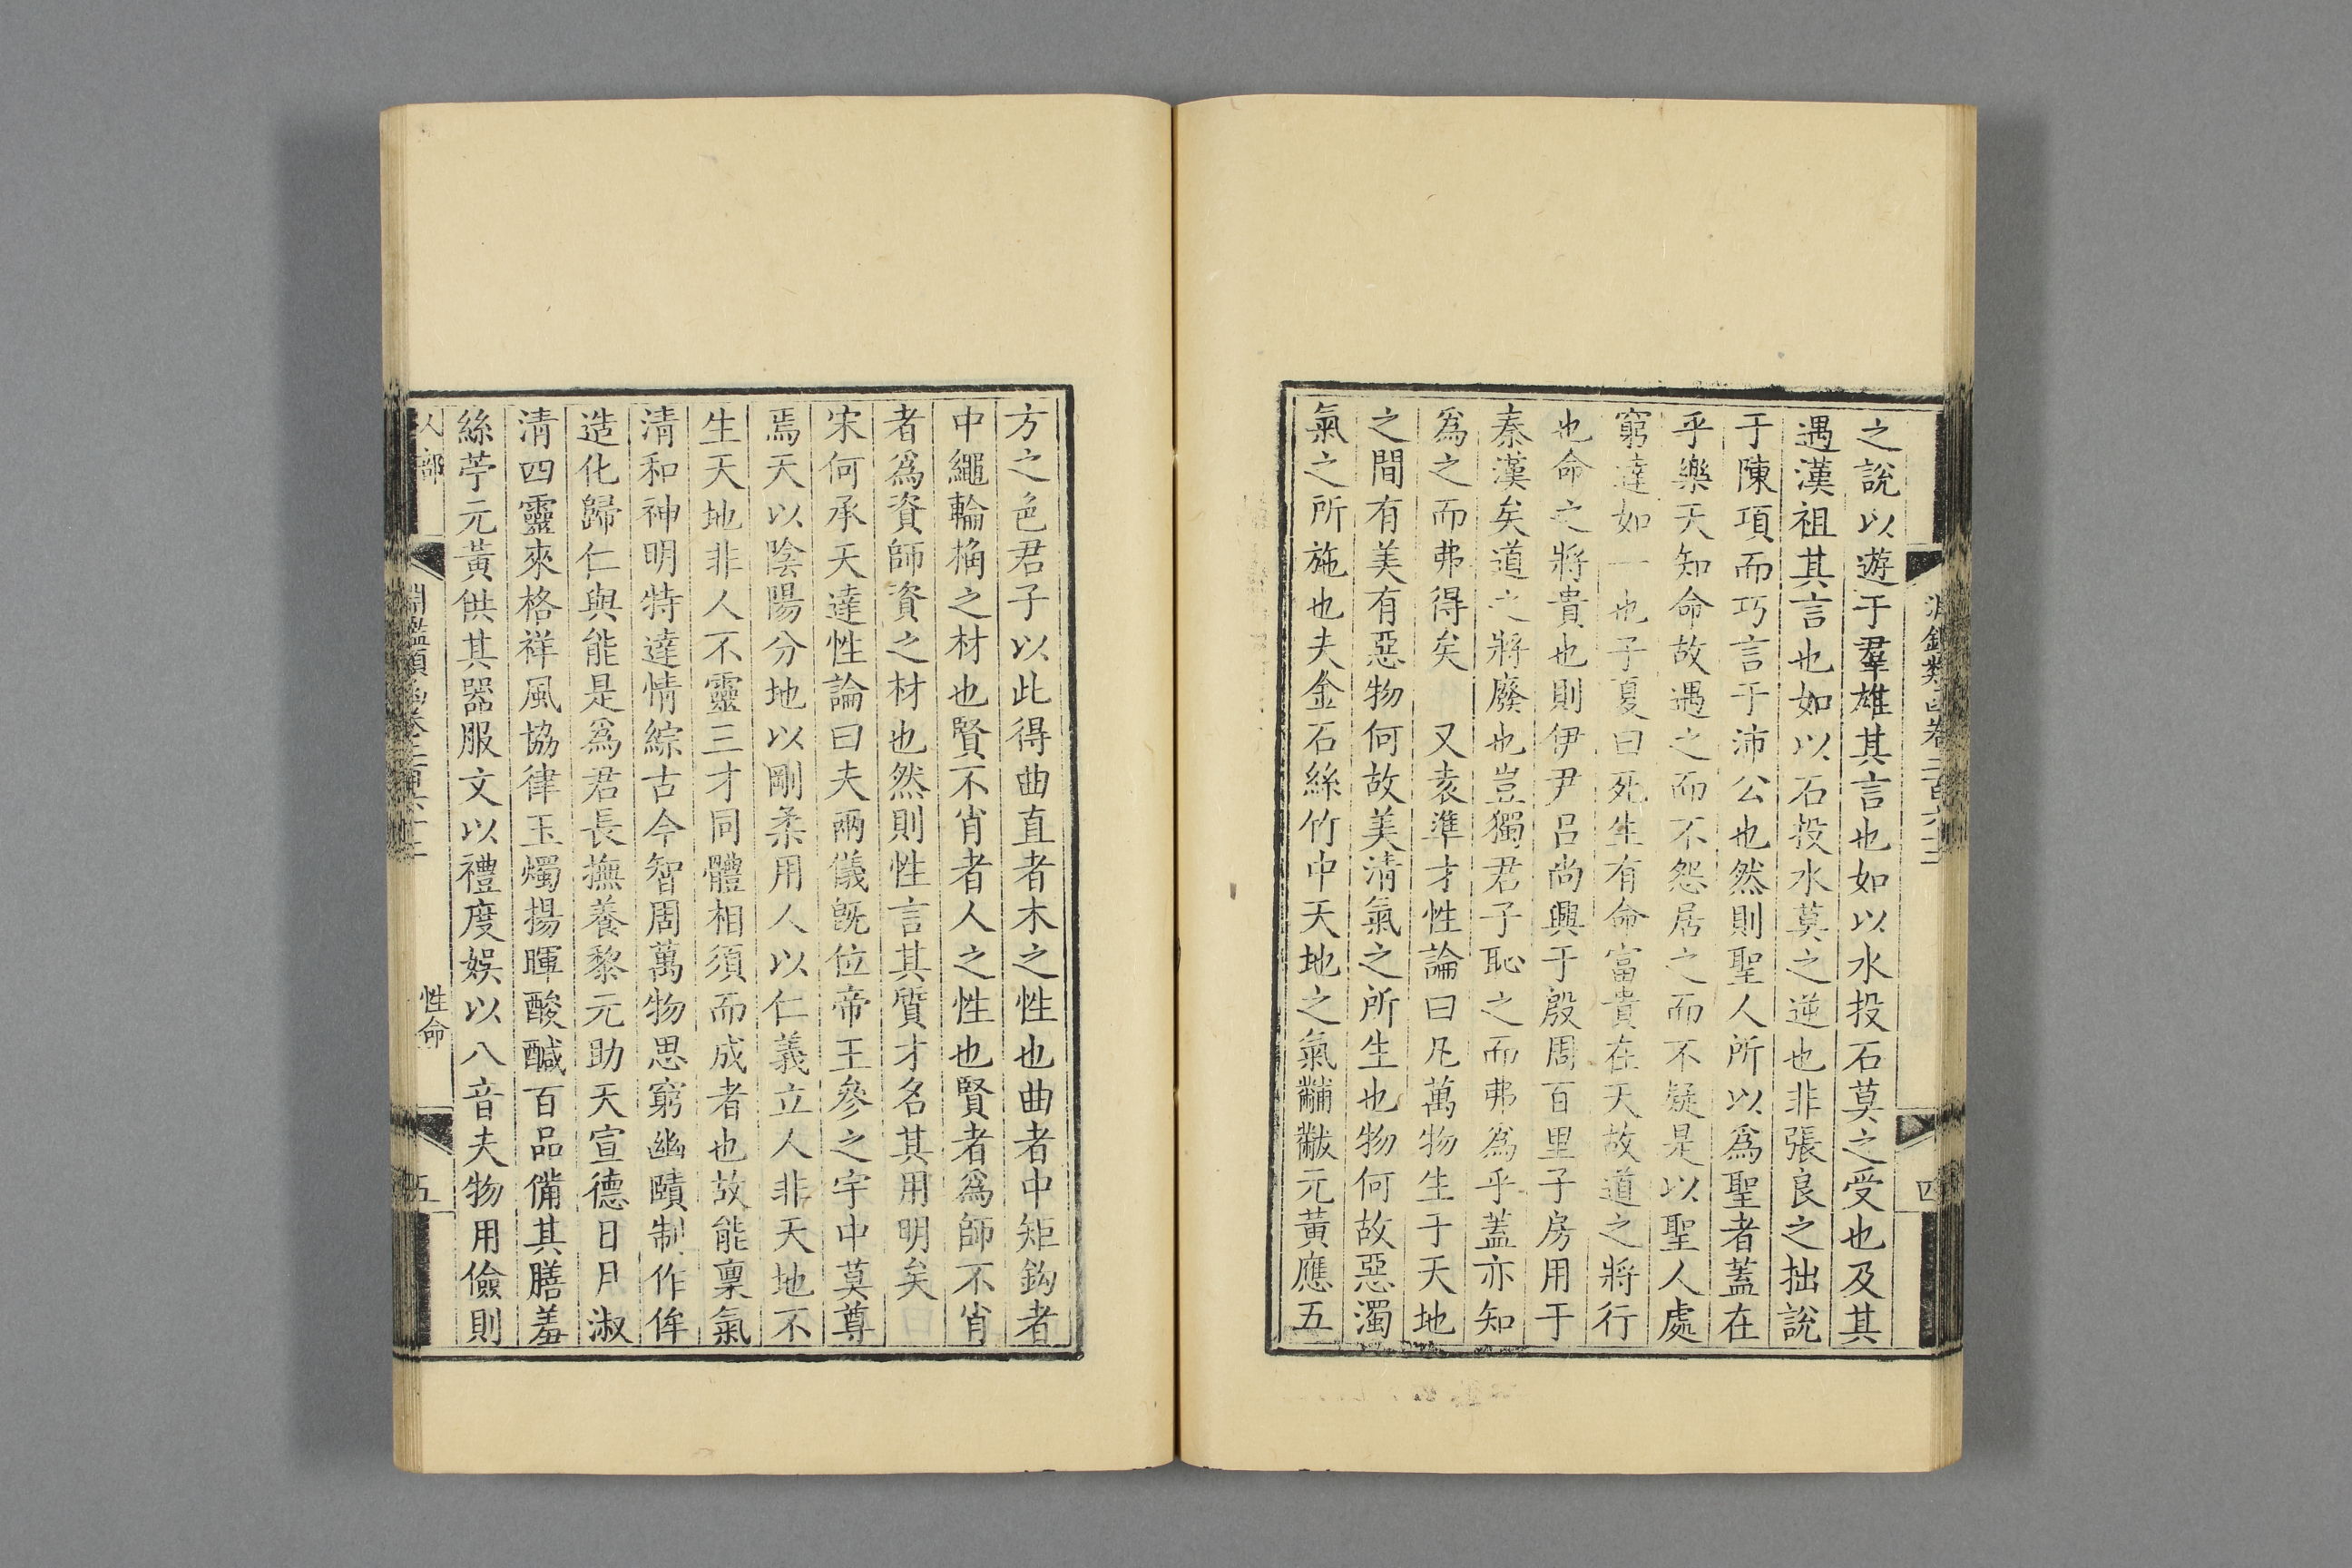 之說以遊于羣雄其言也如以水投石莫之受也及其
遇漢祖其言也如以石投水莫之逆也非張良之拙說
于陳項而巧言于沛公也然則聖人所以爲聖者蓋在
乎樂天知命故遇之而不怨居之而不疑是以聖人處
窮達如一也子夏曰死生有命富貴在天故道之將行
也命之將貴也則伊尹呂尚興于殷周百里子房用于
秦漢矣道之將廢也豈獨君子恥之而弗爲乎蓋亦知
爲之而弗得矣 又袁準才性論曰凡萬物生于天地
之間有美有惡物何故美清氣之所生也物何故惡濁
氣之所施也夫金石絲竹中天地之氣黼黻元黃應五
方之色君子以此得曲直者木之性也曲者中矩鈎者
中繩輪桷之材也賢不肖者人之性也賢者爲師不肖
者爲資師資之材也然則性言其質才名其用明矣
宋何承天達性論曰夫兩儀旣位帝王參之宇中莫尊
焉天以陰陽分地以剛柔用人以仁義立人非天地不
生天地非人不靈三才同體相須而成者也故能稟氣
清和神明特達情綜古今智周萬物思窮幽賾制作侔
造化歸仁與能是爲君長撫養黎元助天宣德日月淑
清四靈來格祥風協律玉燭揚暉酸醎百品備其膳羞
絲苧元黃供其器服文以禮度娛以八音夫物用儉則
人部
淵鑑類函卷二百六十二
性命
五
淵鑑類函卷二百六十二
四